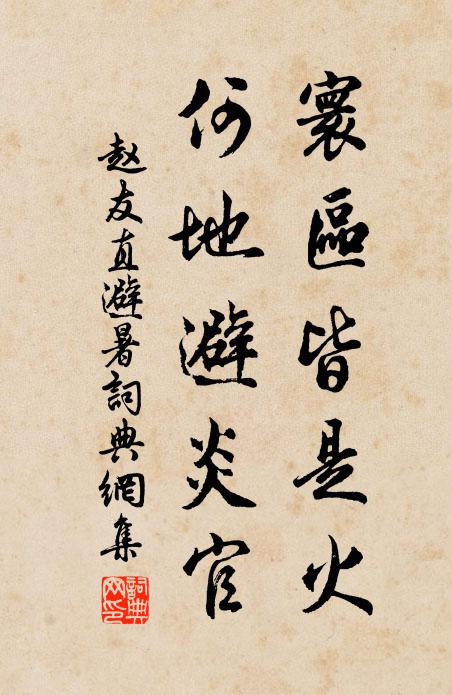 寰區皆是火
何地避炎官
赵友直避暑詞典網集
詞典網印